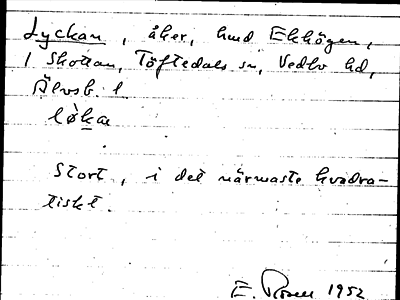 Lyckan, åker, hmd Ekhögen,
1 Skottan, Töftedals sn, Vedbo hd,
Älvsb. l.
lø̀ka
Stort, i det närmaste kvadra-
tiskt.
E. Rosell 1952